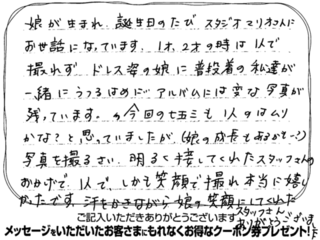 娘が生まれ、誕生日のたび スタジオマリオさんに
お世話になっています。1才、2才の時は1人で
撮れず ドレス姿の娘に普段着の私達が
一緒にうつるはめに。アルバムには変な写真が
残っています。今回の七五三も1人はムリ
かな?と思っていましたが(娘の成長もあるかも…?)
写真を撮るさい、明るく接してくれたスタッフさんの
おかげで 1人で、しかも笑顔で撮れ本当に嬉し
かったです。汗をかきながら娘を笑顔にしてくれた
スタッフさん
ありがとうございます
ご記入いただきありがとうございます
メッセージをいただいたお客さまにもれなくお得なクーポン券プレゼント!